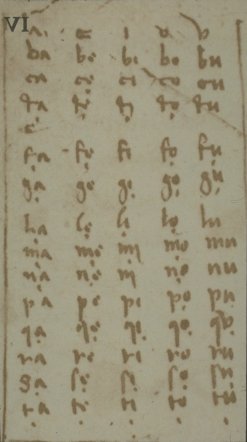 VI
a e i o u
ba be bi bo bu
ca ce ci co cu
da de di do du
fa fe fi fo fu
ga ge gi go gu
la le li lo lu
ma me mi mo mu
na ne ni no nu
pa pe pi po pu
qa qe qi qo qu
ra re ri ro ru
sa se si so su
ta te ti to tu